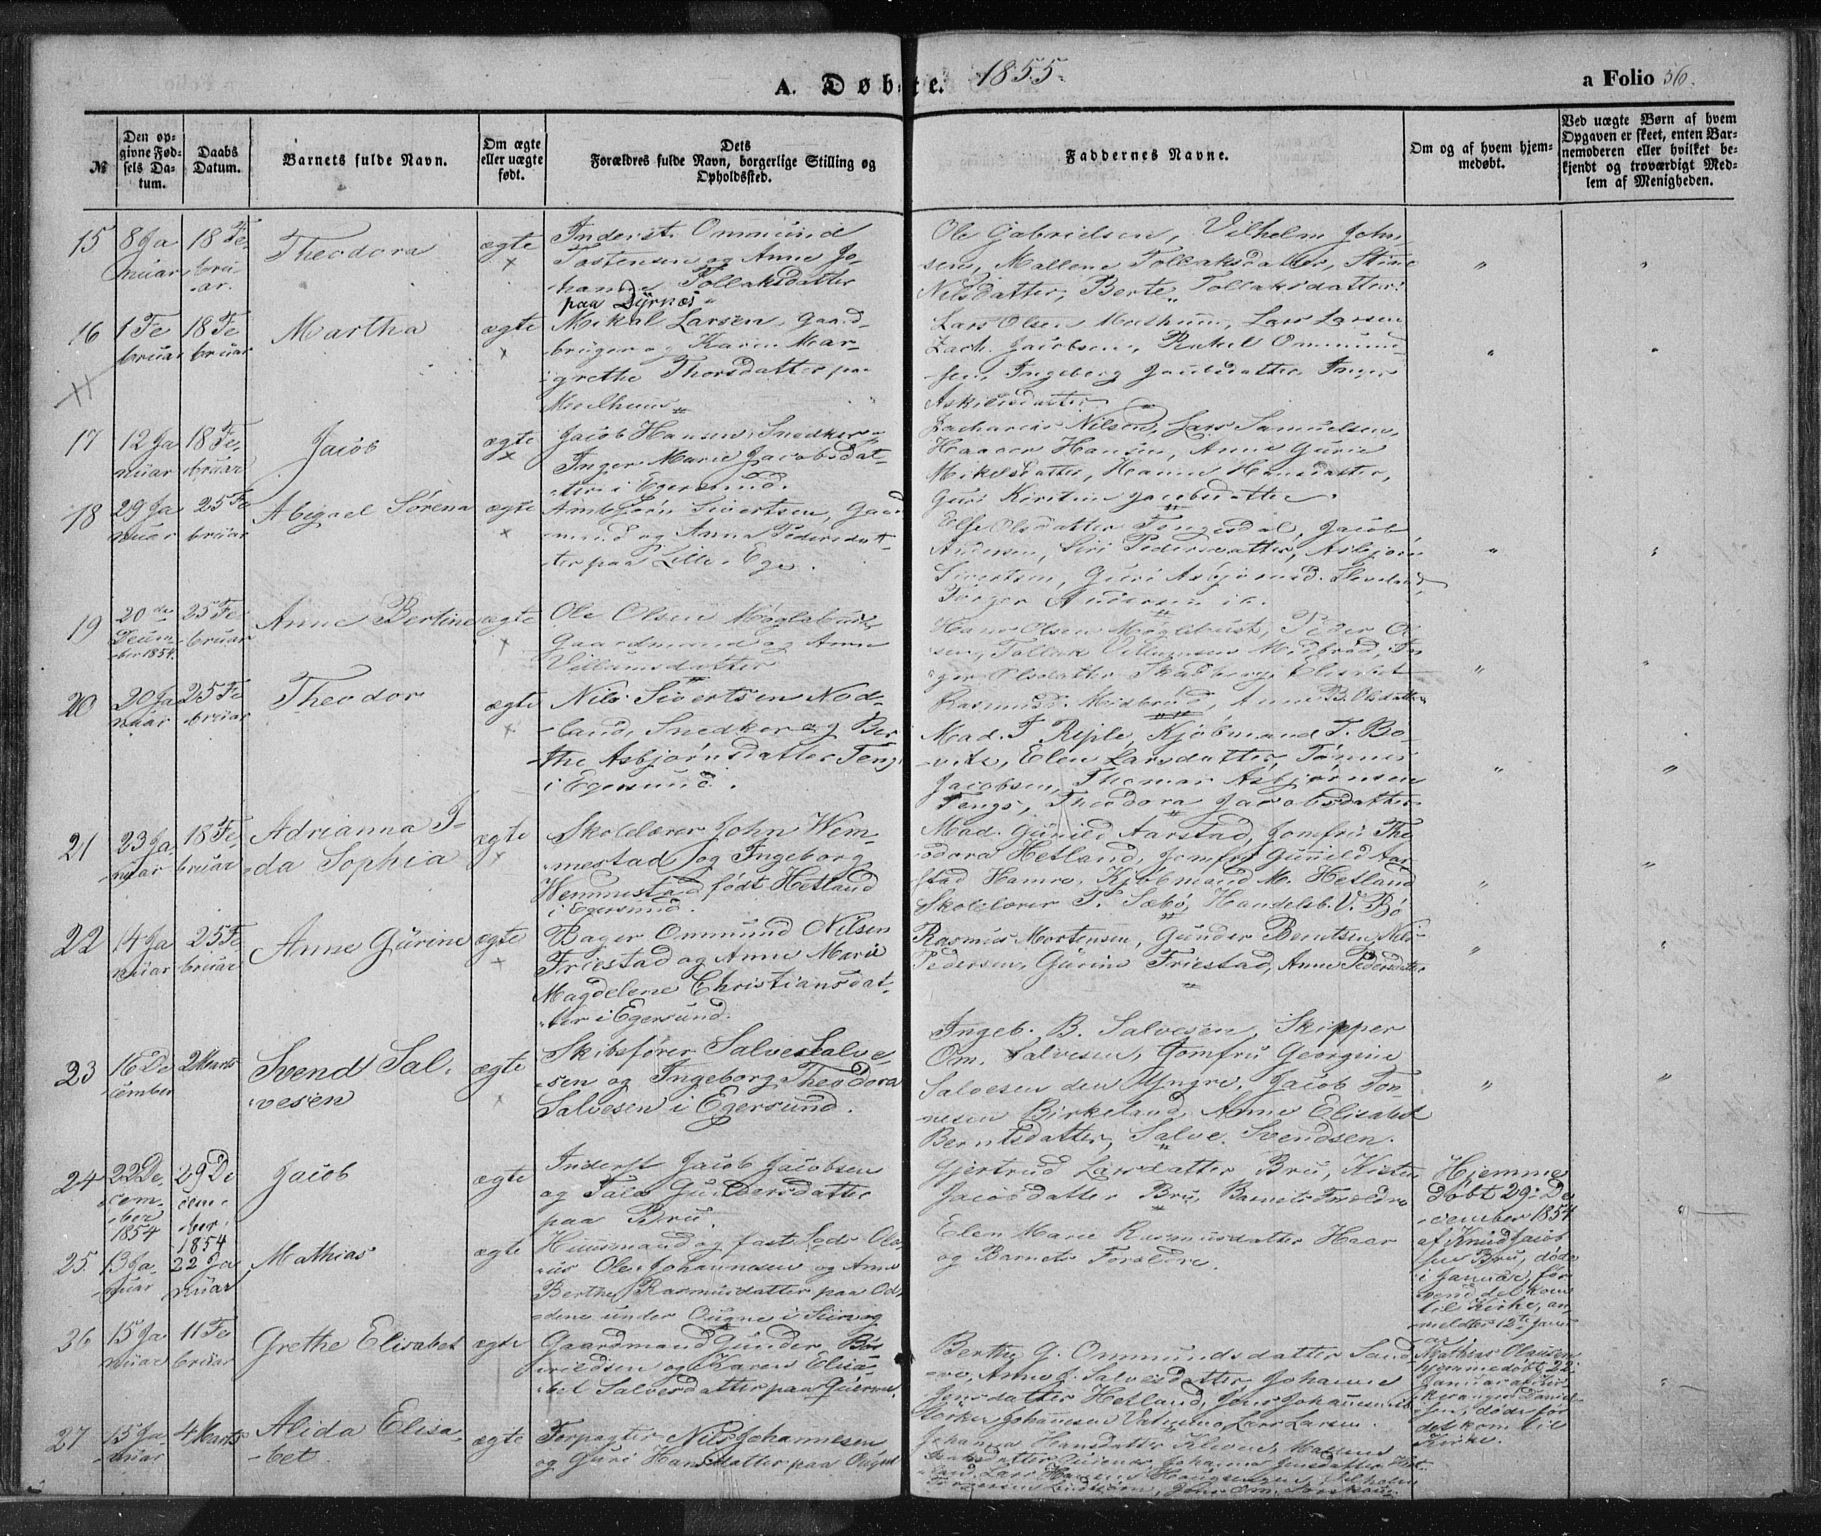 A. Døbte. 1855.
a Folio 56.
№
Den op-
givne Fød-
sels Da-
tum.
Daabs
Datum.
Barnets fulde Navn.
Om ægte
eller uægte
født.
Dets
Forældres fulde Navn, borgerlige Stilling og
Opholdssted.
Faddernes Navne.
Om og af hvem hjem-
medøbt.
Ved uægte Børn af hvem
Opgaven er skeet, enten Bar-
nemoderen eller hvilket be-
kjendt og troværdigt Med-
lem af Menigheden.
15
8 Ja
nuar
18 Fe
bru
ar.
Theodora
ægte
Inderst. Ommund
Tostensen og Anne Jo-
hanne Tollaksdatter
paa Dyrnæs
Ole Gabrielsen, Vilhelm John-
sen, Mallene Tollaksdatter, Stine
Nilsdatter, Berte Tollaksdatter.
16
1 Fe
bruar
18 Fe
bruar
Martha
ægte
Mikal Larsen, Gaard-
bruger og Karen Mar-
grethe Thorsdatter paa
Lars Olsen Lars Larsen
Zach. Jacobsen, Rakel Ommund-
Ingeborg
Askildsdatter
17
12 Ja
nuar
18 Fe
bruar
Jacob
ægte
Jacob Hansen, Snedker
Inger Marie Jacobsdat-
ter i Egersund.
Zacharias Nilsen, Lars Samuelsen,
Haaver Hansen, Anne Gurie
Mikelsdatter, Hanne Hansdatter,
Guri Kirstine Jacobsdatter.
18
29 Ja
nuar
25 Fe
bruar
Abigael Sørena
ægte
Asbjørn Sivertsen, Gaard
mand og Anna Pedersdat-
ter paa Lille-Ege.
Olsdatter Tengesdal, Jacob
Andersen, Siri Pedersdatter, Asbjørn
Sivertsen, Guri Asbjørnsd.
Torger Andersen
19
20de
Decem-
ber 1854.
25 Fe
bruar
Anne Bertine
ægte
Ole Olsen Møglebust,
Gaardmand og Anne
Villumsdatter
Hans Olsen Møglebust, Peder Ol-
sen, Tollak Villumsen Midbrød,
Olsdatter Skadberg, Elisabet
Rasmusd. Midbrød, Anne B. Olsdatter
20
20 Ja
nuar
25 Fe
bruar
Theodor
ægte
Nils Sivertsen Nod-
land, Snedker og Ber
the Asbjørnsdatter Tengs
i Egersund.
Mad. T. Riple, Kjøbmand T. Bo-
Elen Larsdatter, Tønnes
Jacobsen, Thomas Asbjørnsen
Tengs, Theodora Jacobsdatter
21
23 Ja-
nuar
18 Fe
bruar
Adrianna I-
da Sophia
ægte
Skolelærer John Wem-
mestad og Ingeborg
Wemmestad født Hetland
i Egersund.
Mad. Gunild Aarstad, Jomfru The
odora Hetland, Jomfru Gunild Aar
stad Hamre, Kjøbmand M. Hetland
Skolelærer T. Sæbø, Handelsb. V. Bø
22
14 Ja
nuar
25 Fe
bruar
Anne Gurine
ægte
Bager Ommund Nilsen
Friestad og Anne Marie
Magdelene Christiansdat-
ter i Egersund.
Rasmus Mortensen, Gunder Berntsen, Nils
Pedersen, Gurine Friestad, Anne Pedersdatter
23
16 De
cember
2 Marts
Svend Sal-
vesen
ægte
Skibsfører Salve Salve
sen og Ingeborg Theodora
Salvesen i Egersund.
Ingeb. B. Salvesen, Skipper
Om. Salvesen, Jomfru Georgine
Salvesen den Yngre, Jacob Tøn
nesen Birkeland, Anne Elisabet
Berntsdatter, Salve Svendsen.
24
22 De
cem-
ber
1854
29 De
cem-
ber.
1854
Jacob
ægte
Inderst Jacob Jacobsen
og Tala Gundersdatter
paa Bru.
Gjertrud Larsdatter Bru,
Jacobsdatter Bru, Barnets Forældre
Hjemme
døbt 29 De
cember 1854
af Knud Jacob
sen Bru, døde
i Januar, før
end det kom
til Kirke, an
meldt 12te Janu
ar
25
13 Ja
nuar
22 Ja
nuar
Mathias
ægte
Huusmand og fast Lods Ola-
us Ole Johannesen og Anne
Berthe Rasmusdatter paa Od-
dene under Ougne i Sirevog
Elen Marie Rasmusdatter Haar
og Barnets Forældre.
Mathias Olaussen
hjemmedøbt 22
Januar af
døde før
det kom til
Kirke.
26
15 Ja
nuar
11 Fe
bruar
Grethe Elisabet
ægte
Gaardmand Gunder
og Karen Elisa-
bet Salvesdatter paa
Berthe G. Ommundsdatter
Anne J. Salvesdatter, Johanne
Jonsdatter Hetland, Jone Johannesen
Johannesen Lars Larsen.
27
15 Ja-
nuar
4 Marts
Alida Elisa-
bet
ægte
Forpagter Nils Johannesen
og Guri Hansdatter paa
Johanna Hansdatter
Johanna Jensdatter
Lars Hansen